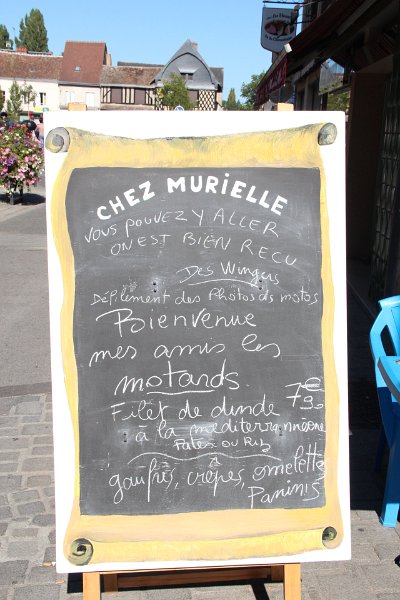 CHEZ MURIELLE
VOUS POUVEZ Y ALLER
ON EST BIEN RECU
Des Wingers
Déplement des Photos ds motos
Bienvenue
mes amis les
motards.
Filet de dinde 7€90
à la mediterranéene
Pates ou Riz
gaufres, crêpes, omelette
Paninis